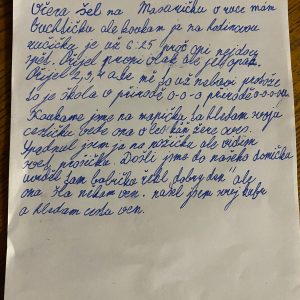 Včera šel na Masaričku v ruce mám
buchtičku ale koukam ja na hodinovou
ručičku je už 6:25 proč oni nejdou
zpět. Přijel první vlak ale jel opak.
Přijel 2,3,4 ale mě so už nebaví protože
so je škola v přírodě 0-0-0 přírodě 0-0-0
Koukame jsme na mapičku ja hledam svoju
cestičku vede ona o les kan žere oves.
šlapnul jsem ja na nožičku ale vidim
svoj prosičku. Došli jsme do našeho domečku
uviděl sam babičku řekl „dobrý den" ale
ona šla nikam ven. našel jsem svoj kufr
a hledam cestu ven.